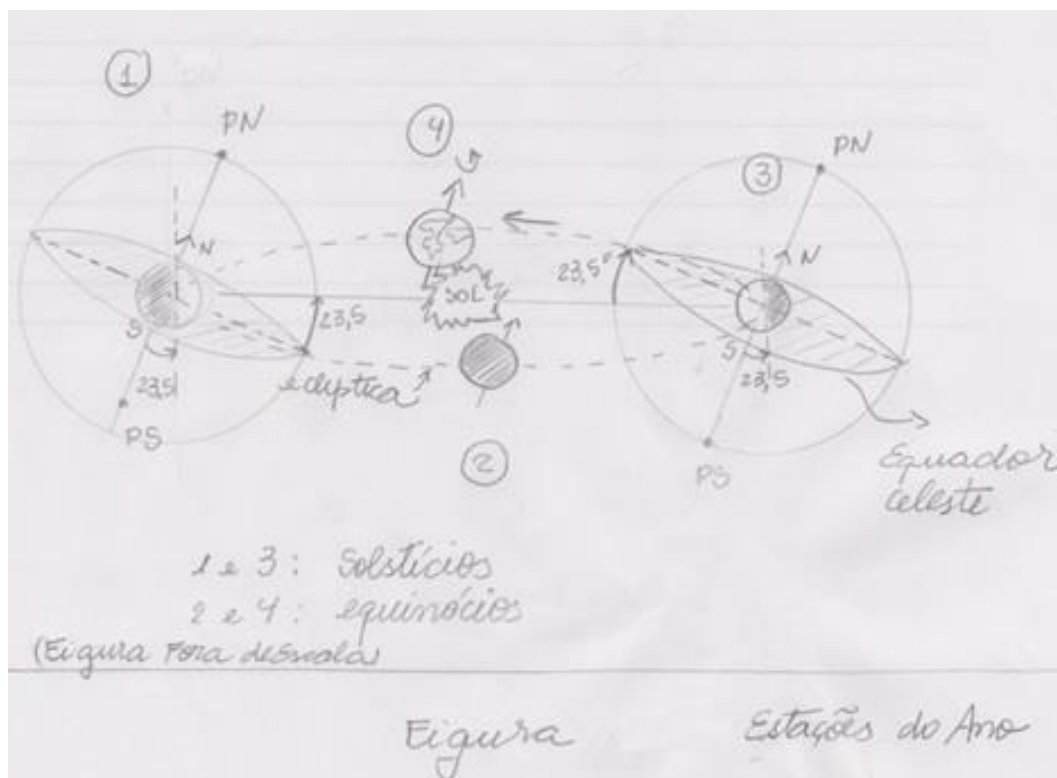 1
PN
4
PN
3
N
N
SOL
23,5
23,5°
S
23,5
eclíptica
S
23,5
PS
2
PS
Equador
celeste
1 e 3: Solstícios
2 e 4: equinócios
(Figura Fora de Escala)
Figura
Estações do Ano